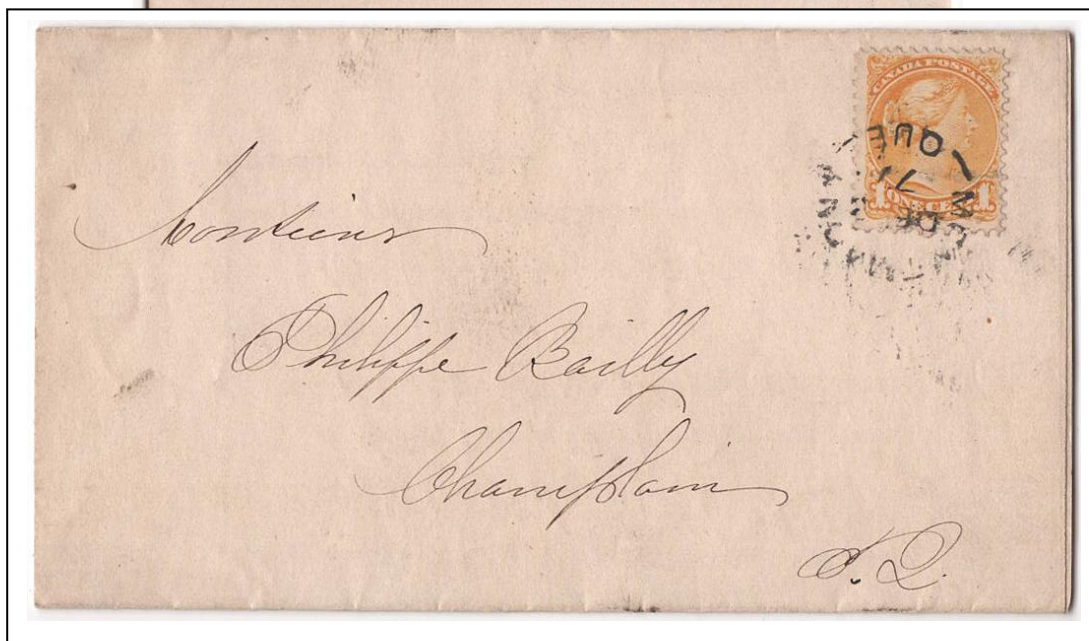 CANADA POSTAGE
1 ONE CENT 1
QUE
Monsieur
Philippe Bailly
Champlain
P. Q.